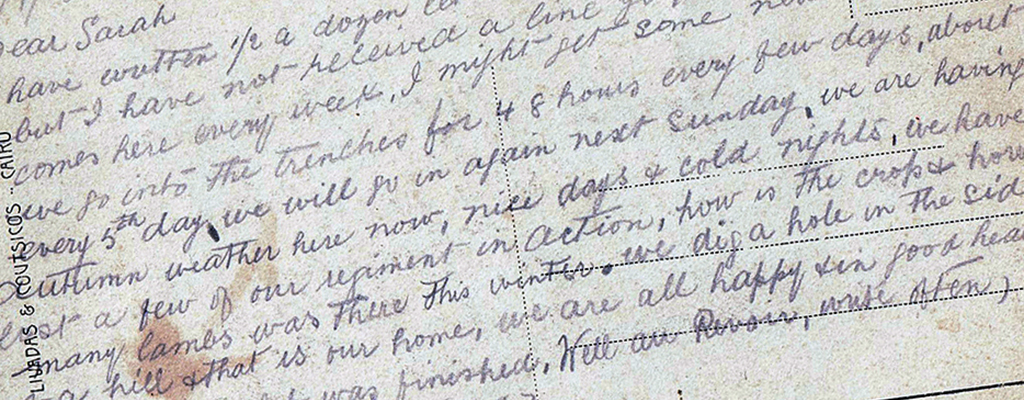 Dear Sarah
have written 1/2 a dozen
but I have not received a line
comes here every week, I might get some
we go into the trenches for 48 hours every few days, about
every 5th day, we will go in again next Sunday, we are having
Autumn weather here now, nice days & cold nights, we have
lost a few of our regiment in action, how is the crops & how
many lambs was there this winter. we dig a hole in the sid
a hill & that is our home, we are all happy & in good hea
was finished, Well au Revoir, write often,
LIVADAS & COUTSICOS - CAIRO